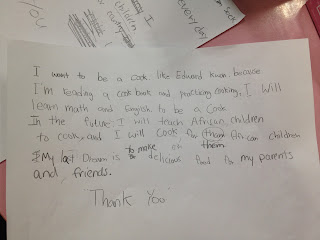 YOU
I
every day.
I want to be a cook like Edward Kwon. because
I'm reading a cook book and practicing cooking. I will
learn math and English to be a Cook.
In the future, I will teach African children
to cook, and I will Cook for African children
My last Dream is to make delicious food for my parents
and friends.
Thank You